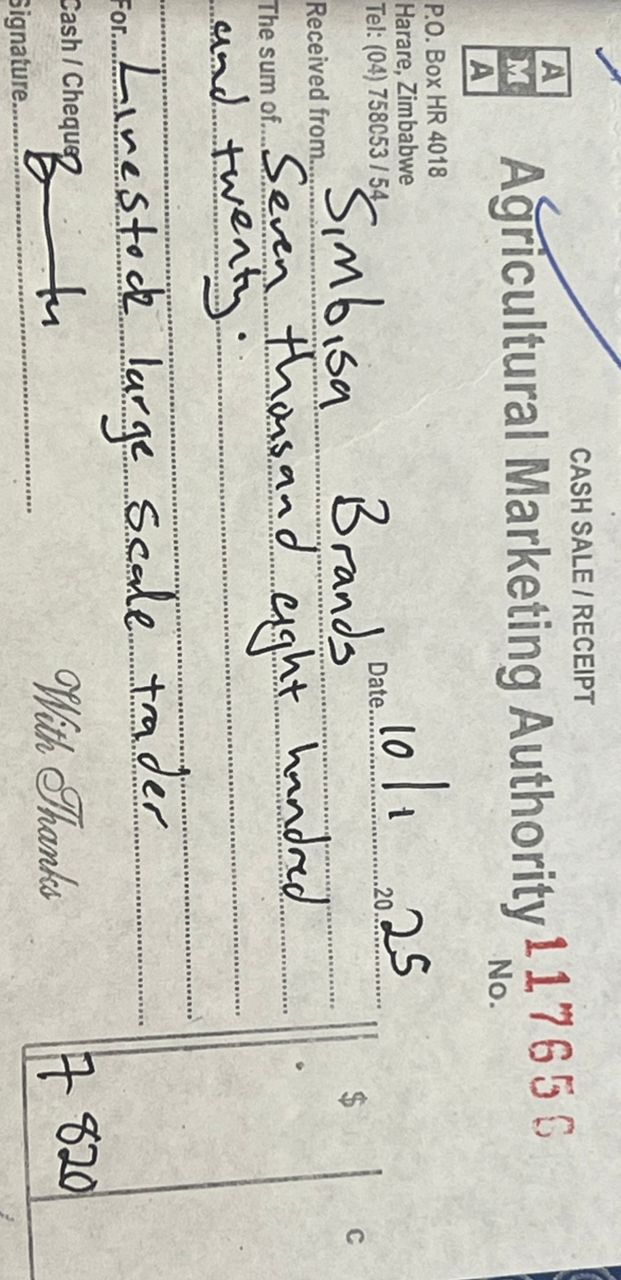 CASH SALE / RECEIPT
A M A
Agricultural Marketing Authority
P.O. Box HR 4018
Harare, Zimbabwe
Tel: (04) 758053 / 54
No. 117656
Date 10/1 2025
Received from Simbisa Brands
The sum of Seven thousand eight hundred
and twenty.
For Livestock large scale trader
$ C
7 820
Cash / Cheque
With Thanks
Signature